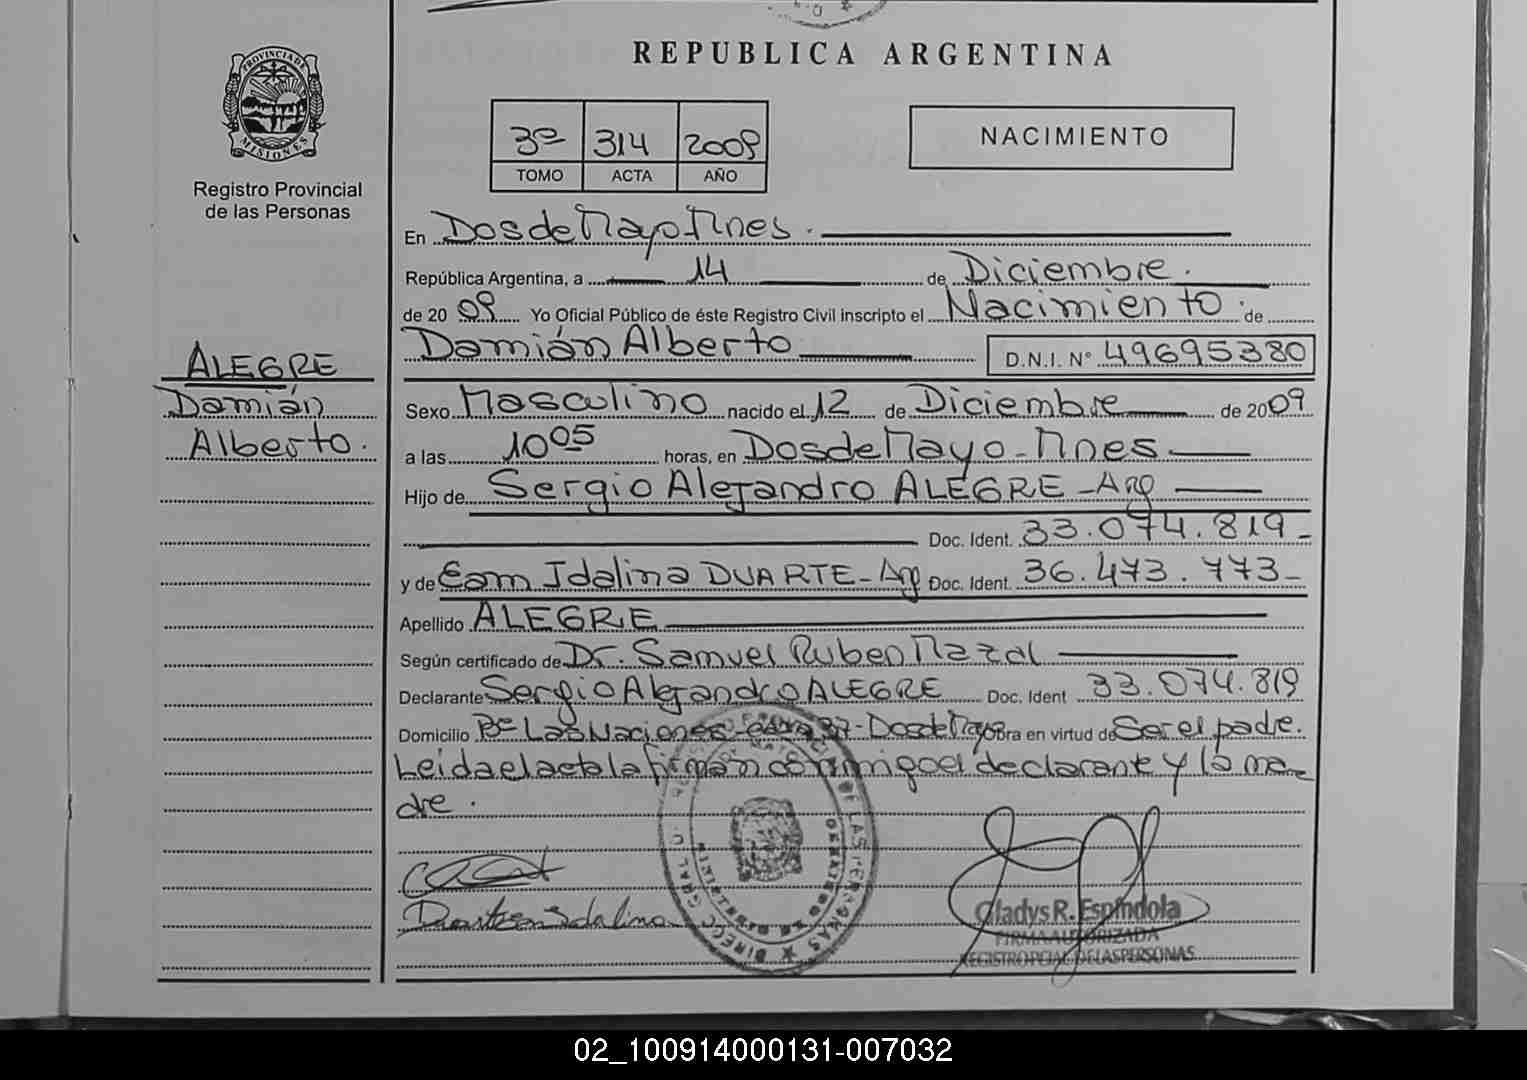 REPUBLICA ARGENTINA
PROVINCIA DE MISIONES
Registro Provincial
de las Personas
3º 314 2009
TOMO ACTA AÑO
NACIMIENTO
En Dos de Mayo-Mnes.
República Argentina, a 14 de Diciembre.
de 2009 Yo Oficial Público de éste Registro Civil inscripto el Nacimiento. de
Damián Alberto D.N.I. Nº 49695380
ALEGRE
Damián
Alberto.
Sexo Masculino nacido el 12 de Diciembre de 2009
a las 10 05 horas, en Dos de Mayo-Mnes
Hijo de Sergio Alejandro ALEGRE-Arg
Doc. Ident. 33.074.819-
y de Eam Idalina DUARTE-Arg Doc. Ident. 36.473.773-
Apellido ALEGRE
Según certificado de Dr. Samuel Ruben Mazal
Declarante Sergio Alejandro ALEGRE Doc. Ident 33.074.819
Domicilio Bº Las Naciones-casa 37-Dos de Mayo Obra en virtud de Ser el padre.
Leida el acta la firman conmigo el declarante y la ma-
dre.
Duarte Eam Idalina
Gladys R. Espindola
FIRMA AUTORIZADA
REGISTRO PCIAL DE LAS PERSONAS
02_100914000131-007032